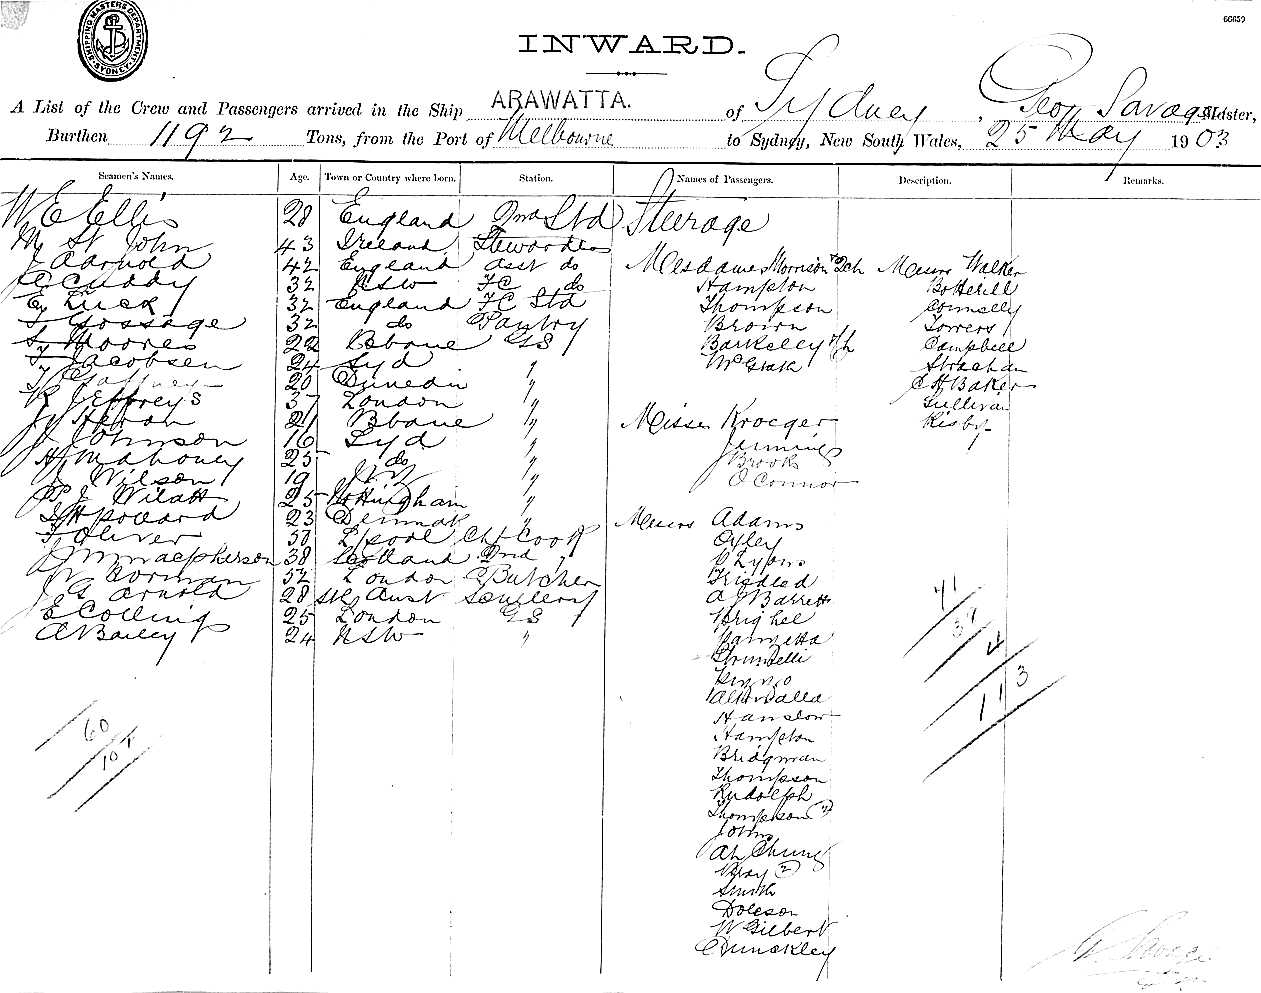 66659
SHIPPING MASTERS DEPARTMENT SYDNEY
INWARD.
A List of the Crew and Passengers arrived in the Ship ARAWATTA. of Sydney, Geo Savage Master,
Burthen 1192 Tons, from the Port of Melbourne to Sydney, New South Wales, 25 May 1903
Seamen's Names. Age. Town or Country where born. Station. Names of Passengers. Description. Remarks.
W E Ellis 28 England 2nd Std
M St John 43 Ireland Stewardess
J Aarnold 42 England asst do
C Cuddy 32 NSW FC do
E Luck 32 England FC Std
T Gossage 32 do Pantry
S Moores 22 Bbane GS
T Jacobsen 24 Syd "
T Gaffney 20 Dunedin "
R Jeffreys 37 London "
J Heron 21 Bbane "
J Johnson 16 Syd "
H Mahoney 25 do "
J Wilson 19 NZ "
P J Wilatt 25 Nottingham "
S H Pollard 23 Denmark "
T Oliver 50 L'pool Chf Cook
J M Macpherson 38 Scotland 2nd "
W Borman 52 London Butcher
J G Arnold 28 Sth Aust Scullery
E Collings 25 London GS
A Bailey 24 NSW "
60
107
Steerage
Mesdames Morrison & 2ch
Hampton
Thompson
Brown
Barkeley & ch
McGrath
Misses Kroeger
Jennings
Brook
O Connor
Messrs Adams
Oyley
Lyons
A J Barrett
Hanslow
Hampton
Bridgman
Thompson
Rudolph
Thompson (2)
Johns
Ah Chung
Wray (2)
Smith
Doleson
W Gilbert
C Dunckley
Messrs Walker
Botterill
Connelly
Towers
Campbell
Strachan
C H Baker
Sullivan
Risby
71
37
4
113
G Savage